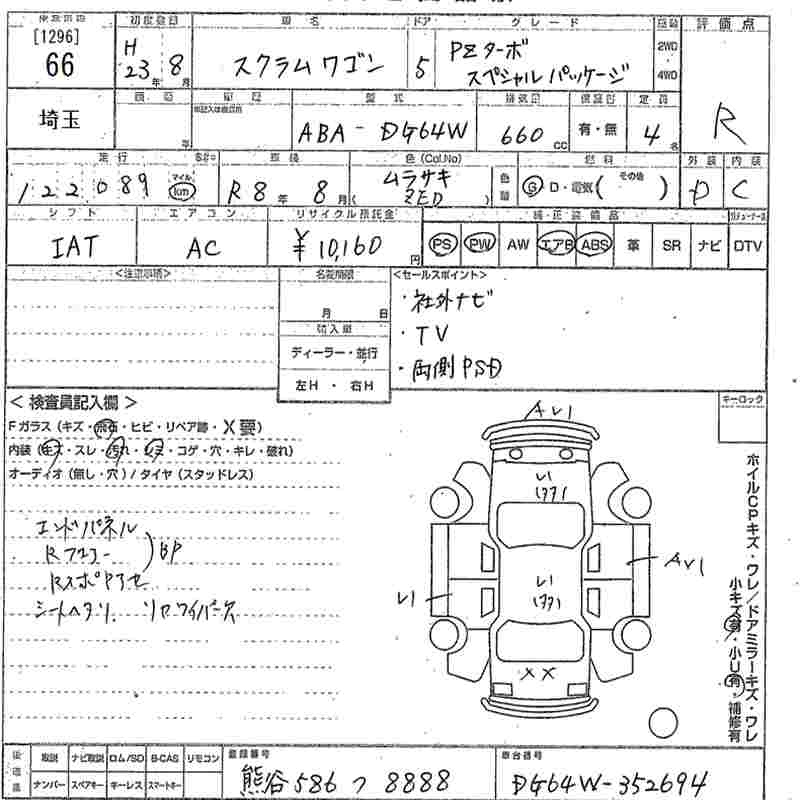 [1296]
66
初度登録
H
23年 8月
車名
スクラム ワゴン
ドア
5
グレード
PZターボ
スペシャル パッケージ
2WD
・
4WD
評価点
R
埼玉
型式
ABA - DG64W
排気量
660 cc
有・無
定員
4名
走行
122089
マイル
km
車検
R8年 8月
色(Col.No)
ムラサキ
(ZED)
燃料
G・D・電気( その他 )
外装
D
内装
C
シフト
IAT
エアコン
AC
リサイクル預託金
¥10,160円
純正装備品
PS PW AW エアB ABS 革 SR ナビ DTV
<注意事項>
名変期限
月 日
輸入車
ディーラー・並行
左H・右H
<セールスポイント>
・社外ナビ
・TV
・両側PSD
<検査員記入欄>
Fガラス(キズ・飛石・ヒビ・リペア跡・X要)
内装(キズ・スレ・汚れ・シミ・コゲ・穴・キレ・破れ)
オーディオ(無し・穴)/タイヤ(スタッドレス)
エンドパネル
Rフロアー
BP
シートヘタリ リヤワイパー欠
キーロック
AU1
U1
U1
AU1
U1
XX
ホイルCPキズ・ワレ/ドアミラーキズ・ワレ
小キズ有・小U有・補修有
後日品
取説 ナビ取説 ロム/SD B-CAS リモコン
ナンバー スペアキー キーレス スマートキー
登録番号
熊谷 586 つ 8888
車台番号
DG64W-352694